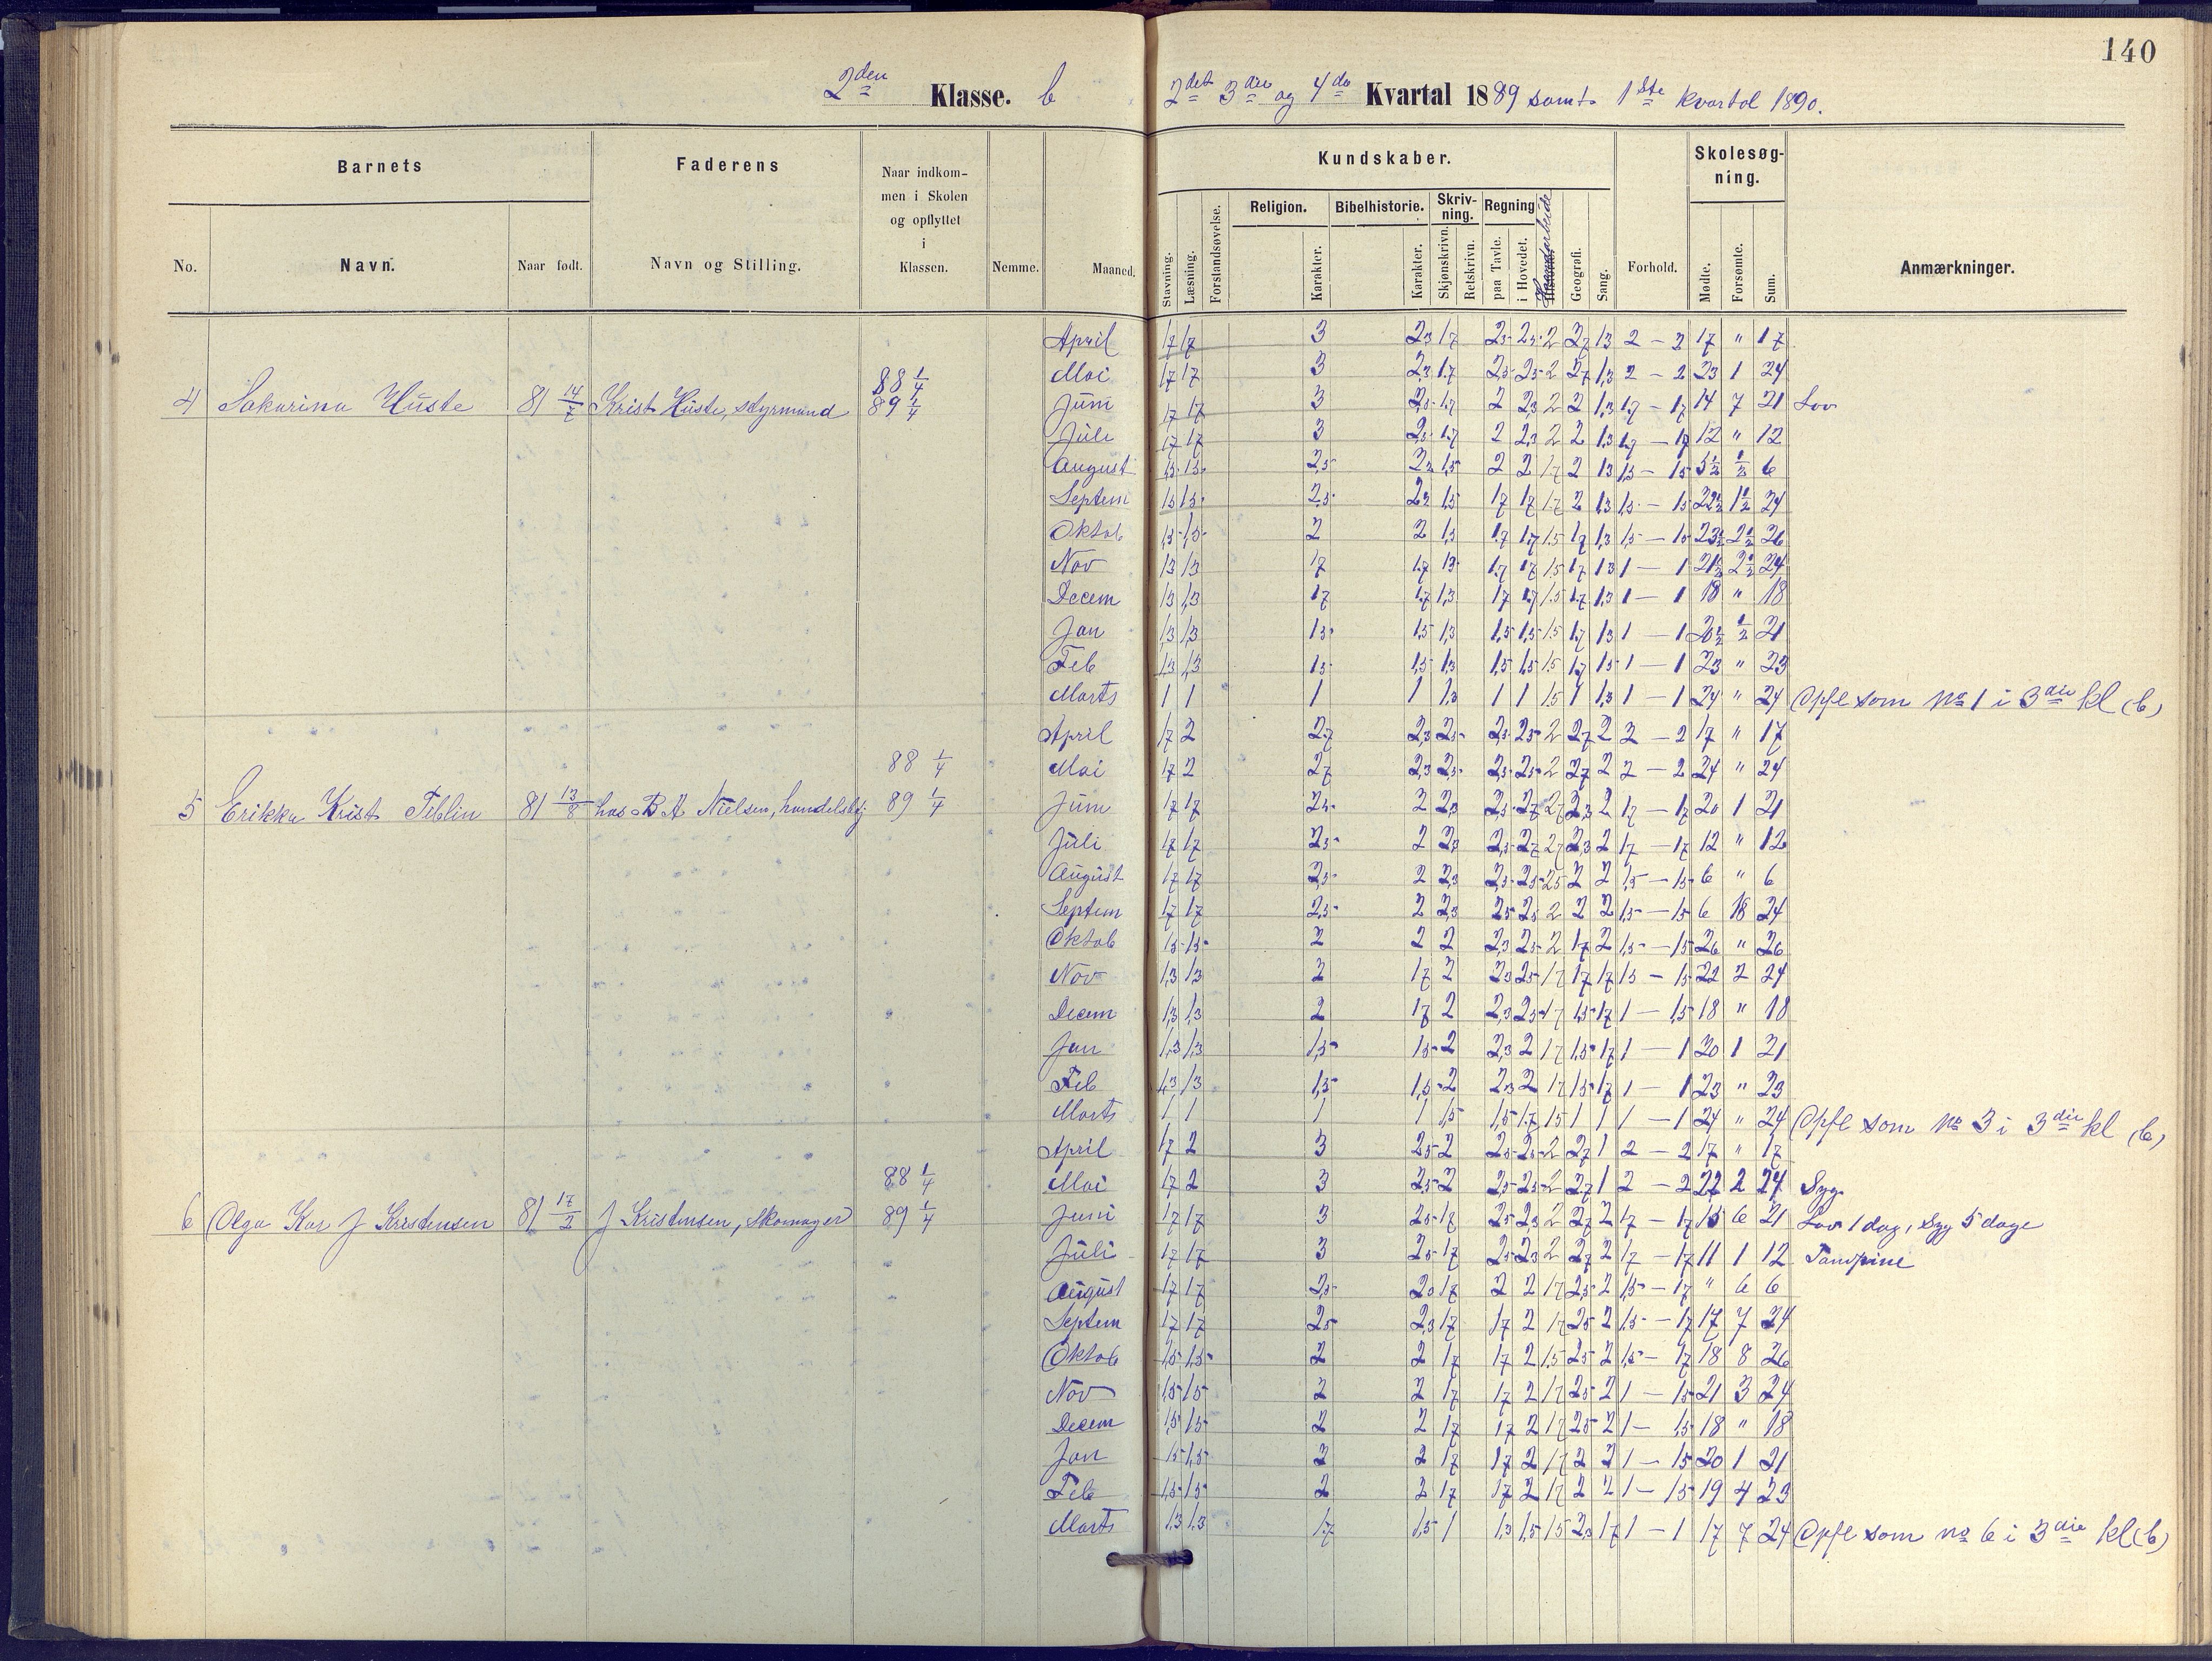 140
2den Klasse. b
2det 3die og 4de Kvartal 1889 samt 1ste Kvartal 1890.
Barnets Faderens Naar indkom-
men i Skolen
og opflyttet
i
Klassen.
No. Navn. Naar født. Navn og Stilling. Nemme. Maaned.
Kundskaber. Skolesøg-
ning.
Religion. Bibelhistorie. Skriv-
ning. Regning
Stavning. Læsning. Forstandsøvelse. Karakter. Karakter. Skjønskrivn. Retskrivn. paa Tavle. i Hovedet. Haandarbeide Geografi. Sang. Forhold. Mødte. Forsømte. Sum. Anmærkninger.
April 1,7 1,7 3 2,3 1,7 2,5 2,5 2 2,7 1,3 2 — 2 17 " 17
88 1/4
Mai 1,7 1,7 3 2,3 1,7 2,5 2,5 2 2,7 1,3 2 — 2 23 1 24
4 Sakarina Huste 81 14/7 Krist Huste, styrmand 89 1/4 Juni 1,7 1,7 3 2,3 1,7 2 2,3 2 2 1,3 1,7 — 1,7 14 7 21 Lov
Juli 1,7 1,7 3 2,3 1,7 2 2,3 2 2 1,3 1,7 — 1,7 12 " 12
August 1,5 1,5 2,5 2,3 1,5 2 2 1,7 2 1,3 1,5 — 1,5 5 1/2 1/2 6
Septem 1,5 1,5 2,5 2,3 1,5 1,7 1,7 1,7 2 1,3 1,5 — 1,5 22 1/2 1 1/2 24
Oktob 1,5 1,5 2 2 1,5 1,7 1,7 1,5 1,7 1,3 1,5 — 1,5 23 1/2 2 1/2 26
Nov 1,3 1,3 1,7 1,7 1,3 1,7 1,7 1,5 1,7 1,3 1 — 1 21 1/2 2 1/2 24
Decem 1,3 1,3 1,7 1,7 1,3 1,7 1,7 1,5 1,7 1,3 1 — 1 18 " 18
Jan 1,3 1,3 1,5 1,5 1,3 1,5 1,5 1,5 1,7 1,3 1 — 1 20 1/2 1/2 21
Feb 1,3 1,3 1,5 1,5 1,3 1,5 1,5 1,5 1,7 1,5 1 — 1 23 " 23
Marts 1 1 1 1 1,3 1 1 1,5 1 1,3 1 — 1 24 " 24 Opfl som No 1 i 3die kl (b)
April 1,7 2 2,7 2,3 2,5 2,5 2,5 2 2,7 2 2 — 2 17 " 17
88 1/4 Mai 1,7 2 2,7 2,3 2,5 2,5 2,5 2 2,7 2 2 — 2 24 " 24
5 Erikka Krist Tiblin 81 13/8 hos B A Nielsen, handelsbtj 89 1/4 Juni 1,7 1,7 2,5 2 2,3 2,5 2,7 2,7 2,3 2 1,7 — 1,7 20 1 21
Juli 1,7 1,7 2,5 2 2,3 2,5 2,7 2,7 2,3 2 1,7 — 1,7 12 " 12
August 1,7 1,7 2,5 2 2,3 2,5 2,5 2,5 2 2 1,5 — 1,5 6 " 6
Septem 1,7 1,7 2,5 2 2,3 2,5 2,5 2 2 2 1,5 — 1,5 6 18 24
Oktob 1,5 1,5 2 2 2 2,3 2,5 2 1,7 2 1,5 — 1,5 26 " 26
Nov 1,3 1,3 2 1,7 2 2,3 2,5 1,7 1,7 1,7 1,5 — 1,5 22 2 24
Decem 1,3 1,3 2 1,7 2 2,3 2,5 1,7 1,5 1,7 1 — 1,5 18 " 18
Jan 1,3 1,3 1,5 1,5 2 2,3 2 1,7 1,5 1,7 1 — 1 20 1 21
Feb 1,3 1,3 1,5 1,5 2 2,3 2 1,7 1,5 1,7 1 — 1 23 " 23
Marts 1 1 1 1 1,5 1,5 1,7 1,5 1 1 1 — 1 24 " 24 Opfl som No 3 i 3die kl (b)
April 1,7 2 3 2,5 2 2,5 2,5 2 2,7 1 2 — 2 17 " 17
88 1/4 Mai 1,7 2 3 2,5 2 2,5 2,5 2 2,7 1 2 — 2 22 2 24 Syg
6 Olga Kar J Kristensen 81 17/2 J Kristensen, skomager 89 1/4 Juni 1,7 1,7 3 2,5 1,7 2,5 2,3 2 2,7 2 1,7 — 1,7 15 6 21 Lov 1 dag, Syg 5 dage
Juli 1,7 1,7 3 2,5 1,7 2,5 2,3 2 2,7 2 1,7 — 1,7 11 1 12 Tandpine
August 1,7 1,7 2,5 2,3 1,7 2 2 1,7 2,5 2 1,5 — 1,7 " 6 6
Septem 1,7 1,7 2,5 2,3 1,7 1,7 2 1,7 2,5 2 1,5 — 1,7 17 7 24
Oktob 1,5 1,5 2 2 1,7 1,7 2 1,5 2,5 2 1,5 — 1,7 18 8 26
Nov 1,5 1,5 2 2 1,7 1,7 2 1,7 2,5 2 1 — 1,5 21 3 24
Decem 1,5 1,5 2 2 1,7 1,7 2 1,7 2,5 2 1 — 1,5 18 " 18
Jan 1,5 1,5 2 2 1,7 1,7 2 1,7 2 2 1 — 1,5 20 1 21
Feb 1,5 1,5 2 2 1,7 1,7 2 1,7 2 2 1 — 1,5 19 4 23
Marts 1,3 1,3 1,7 1,5 1 1,3 1,5 1,5 2,3 1,7 1 — 1 17 7 24 Opfl som no 6 i 3die kl (b)